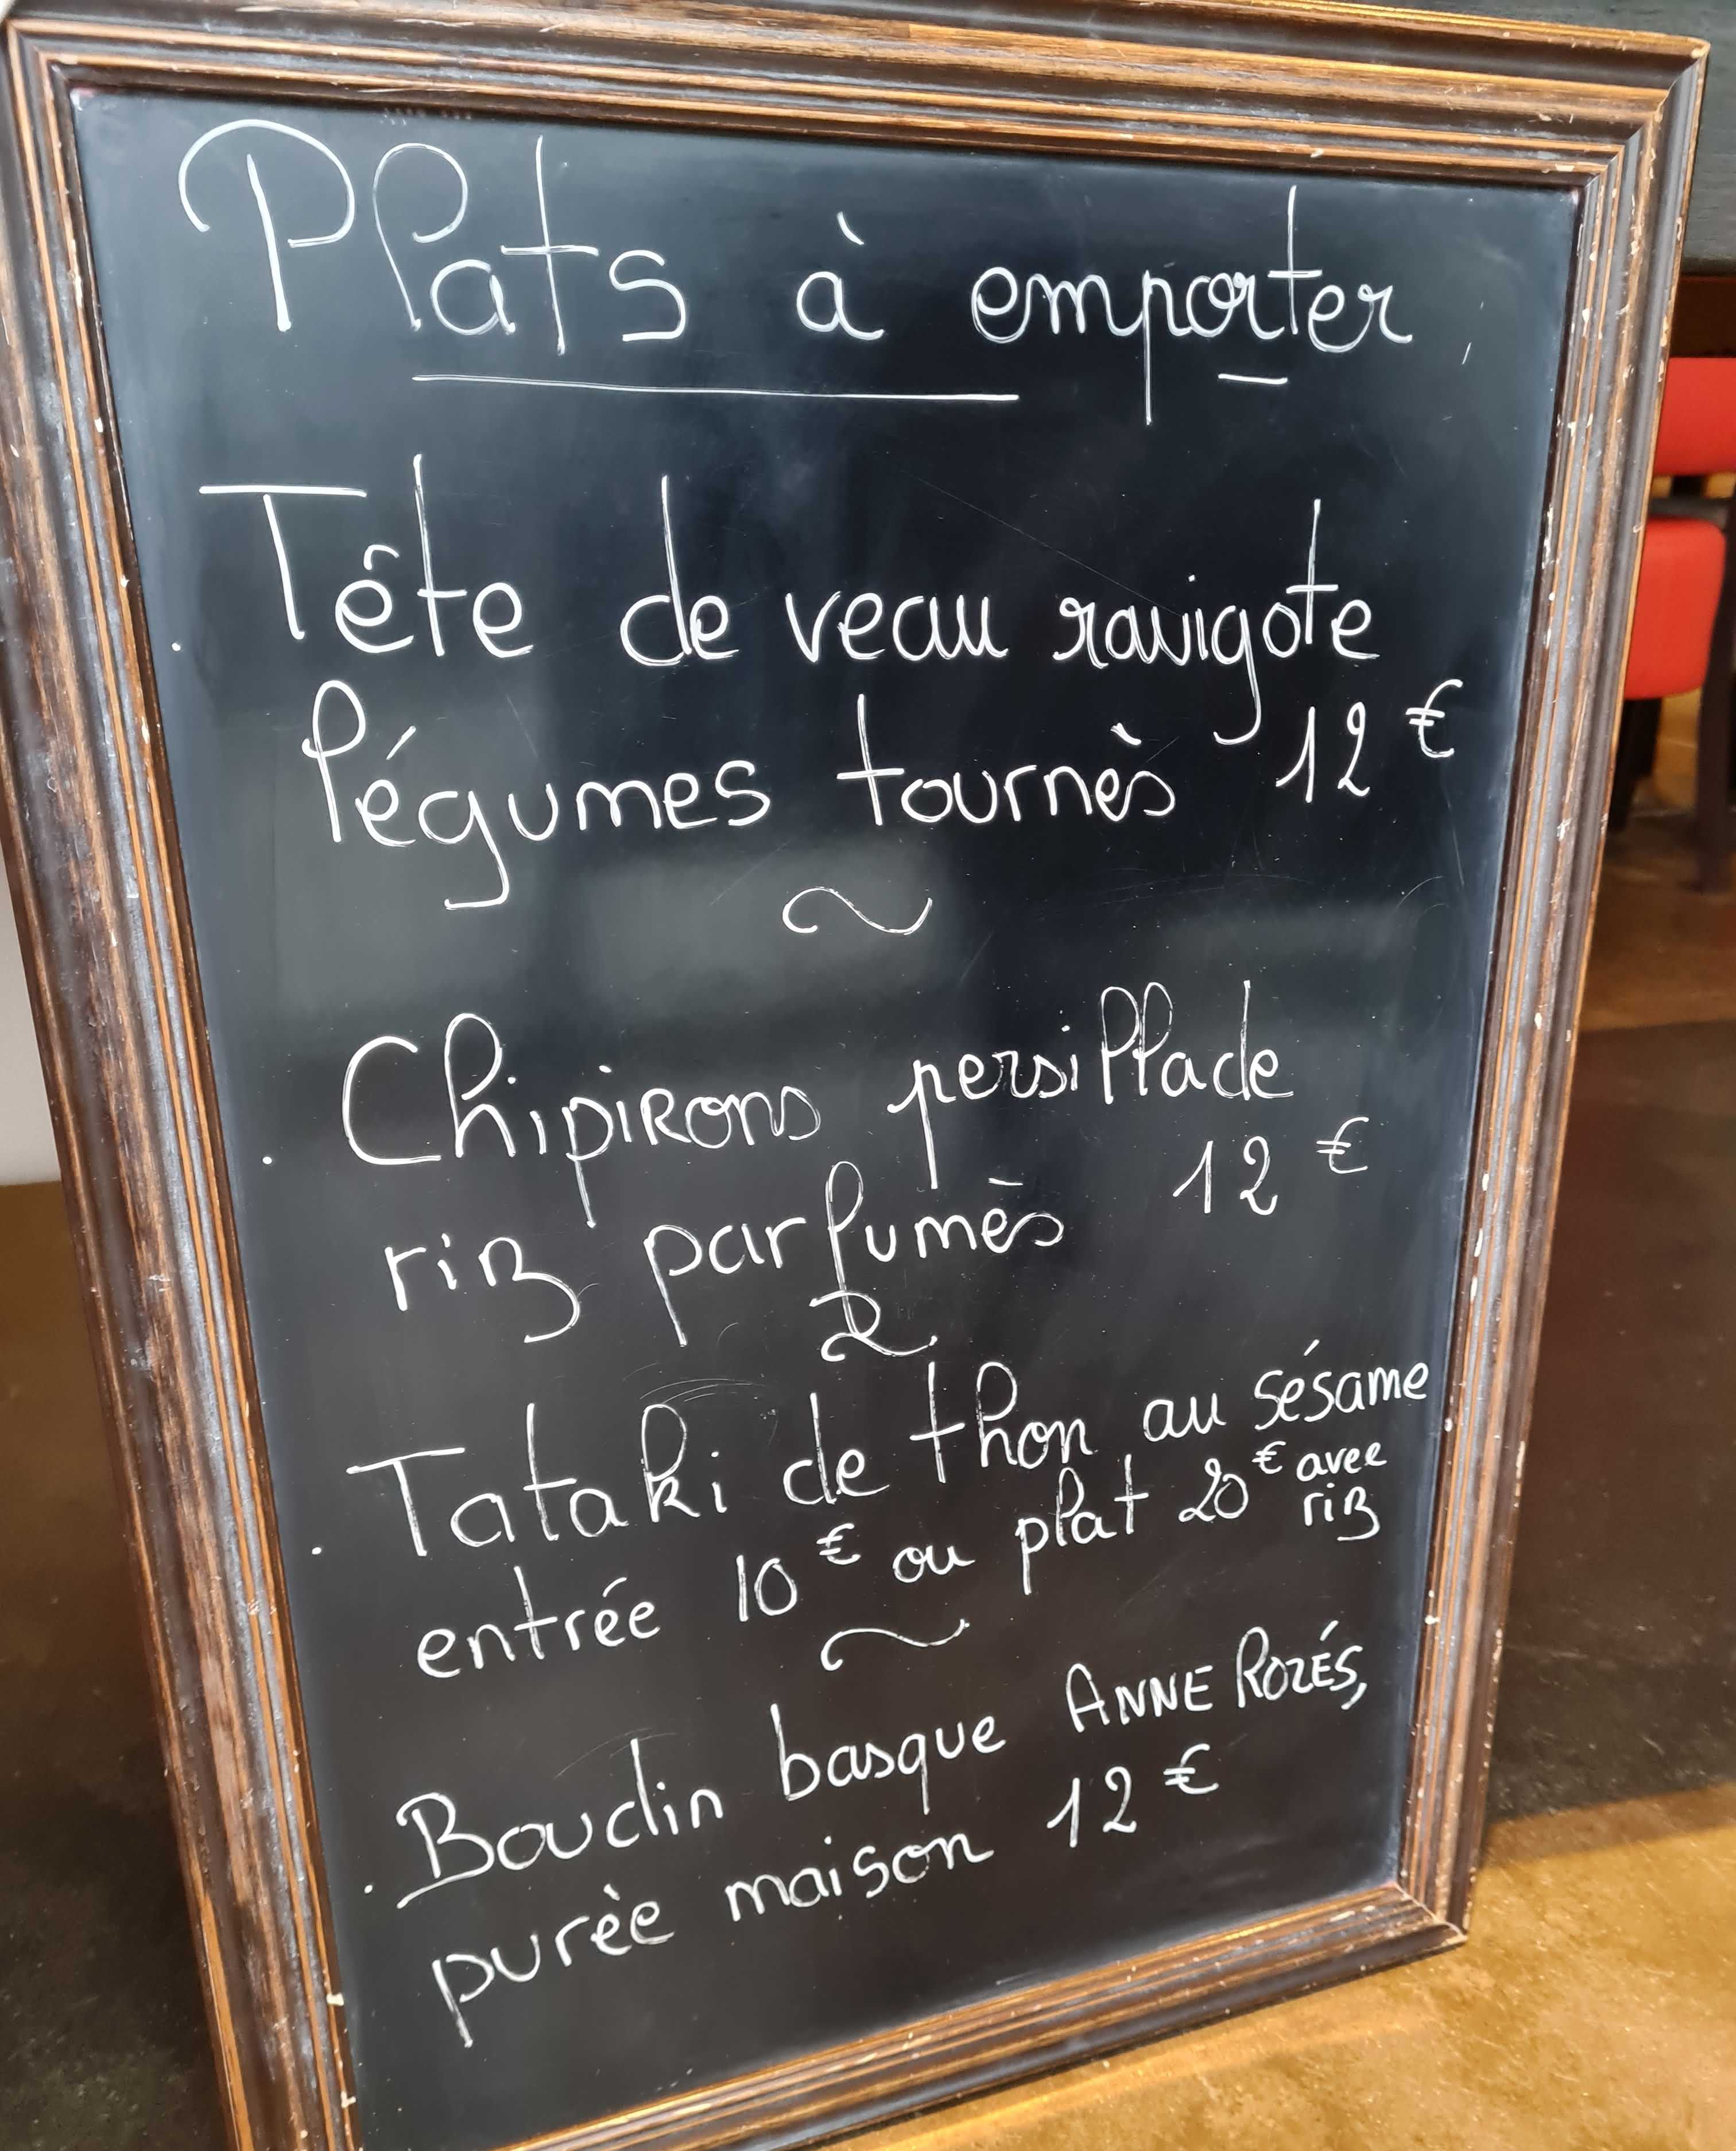 Plats à emporter
Tête de veau ravigote
légumes tournès 12 €
~
Chipirons persillade
riz parfumès 12 €
~
Tataki de thon au sésame
entrée 10 € ou plat 20 € avec riz
~
Boudin basque ANNE ROZÉS,
purèe maison 12 €